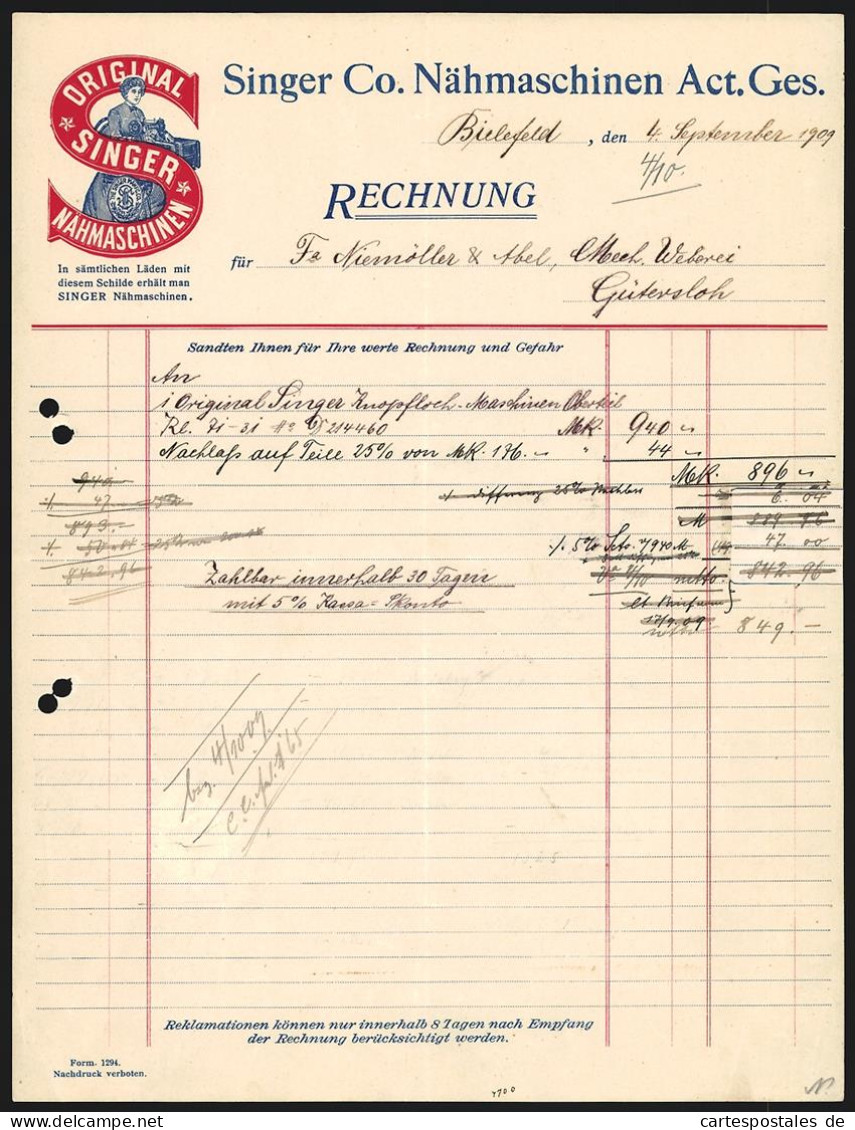 ORIGINAL
SINGER
NÄHMASCHINEN
In sämtlichen Läden mit
diesem Schilde erhält man
SINGER Nähmaschinen.
Singer Co. Nähmaschinen Act. Ges.
Bielefeld, den 4. September 1909
4/10.
RECHNUNG
für Fa Niemöller & Abel, Mech. Weberei
Gütersloh
Sandten Ihnen für Ihre werte Rechnung und Gefahr
An
1 Original Singer Knopfloch-Maschinen Oberteil
Kl. 71-31 No D 214460 MK. 940 "
Nachlaß auf Teile 25% von MK. 176. " " 44 "
MK. 896 "
940
6.04
47.
893.
M 889 96
50.04
% 5% 940 M 47.00
842,96
842.96
Zahlbar innerhalb 30 Tagen
mit 5% Kassa-Skonto
17/9.09
849.-
bez. 4/10 09
Reklamationen können nur innerhalb 8 Tagen nach Empfang
der Rechnung berücksichtigt werden.
Form. 1294.
Nachdruck verboten.
cartespostales de